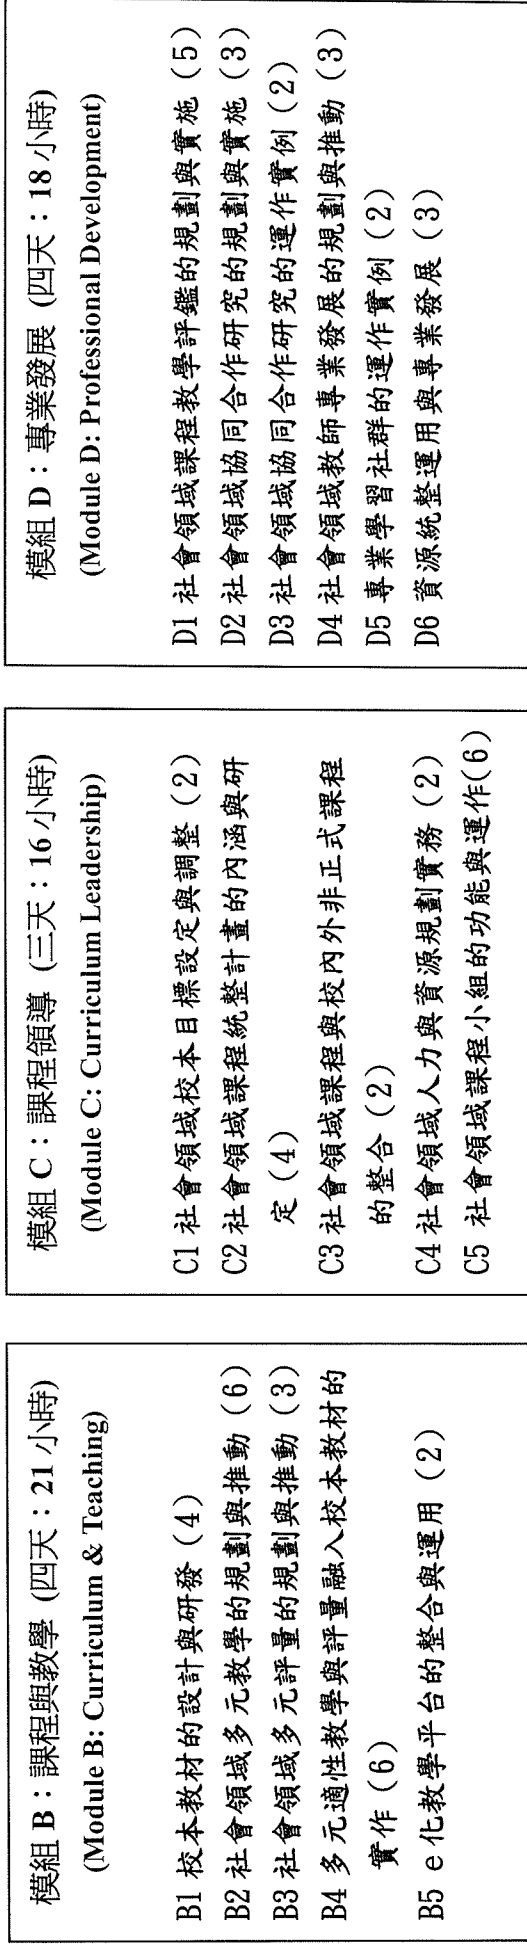 模組 B：課程與教學 (四天：21 小時)
(Module B: Curriculum & Teaching)
B1 校本教材的設計與研發（4）
B2 社會領域多元教學的規劃與推動（6）
B3 社會領域多元評量的規劃與推動（3）
B4 多元適性教學與評量融入校本教材的
實作（6）
B5 e 化教學平台的整合與運用（2）
模組 C：課程領導 (三天：16 小時)
(Module C: Curriculum Leadership)
C1 社會領域校本目標設定與調整（2）
C2 社會領域課程統整計畫的內涵與研
定（4）
C3 社會領域課程與校內外非正式課程
的整合（2）
C4 社會領域人力與資源規劃實務（2）
C5 社會領域課程小組的功能與運作(6)
模組 D：專業發展 (四天：18 小時)
(Module D: Professional Development)
D1 社會領域課程教學評鑑的規劃與實施（5）
D2 社會領域協同合作研究的規劃與實施（3）
D3 社會領域協同合作研究的運作實例（2）
D4 社會領域教師專業發展的規劃與推動（3）
D5 專業學習社群的運作實例（2）
D6 資源統整運用與專業發展（3）